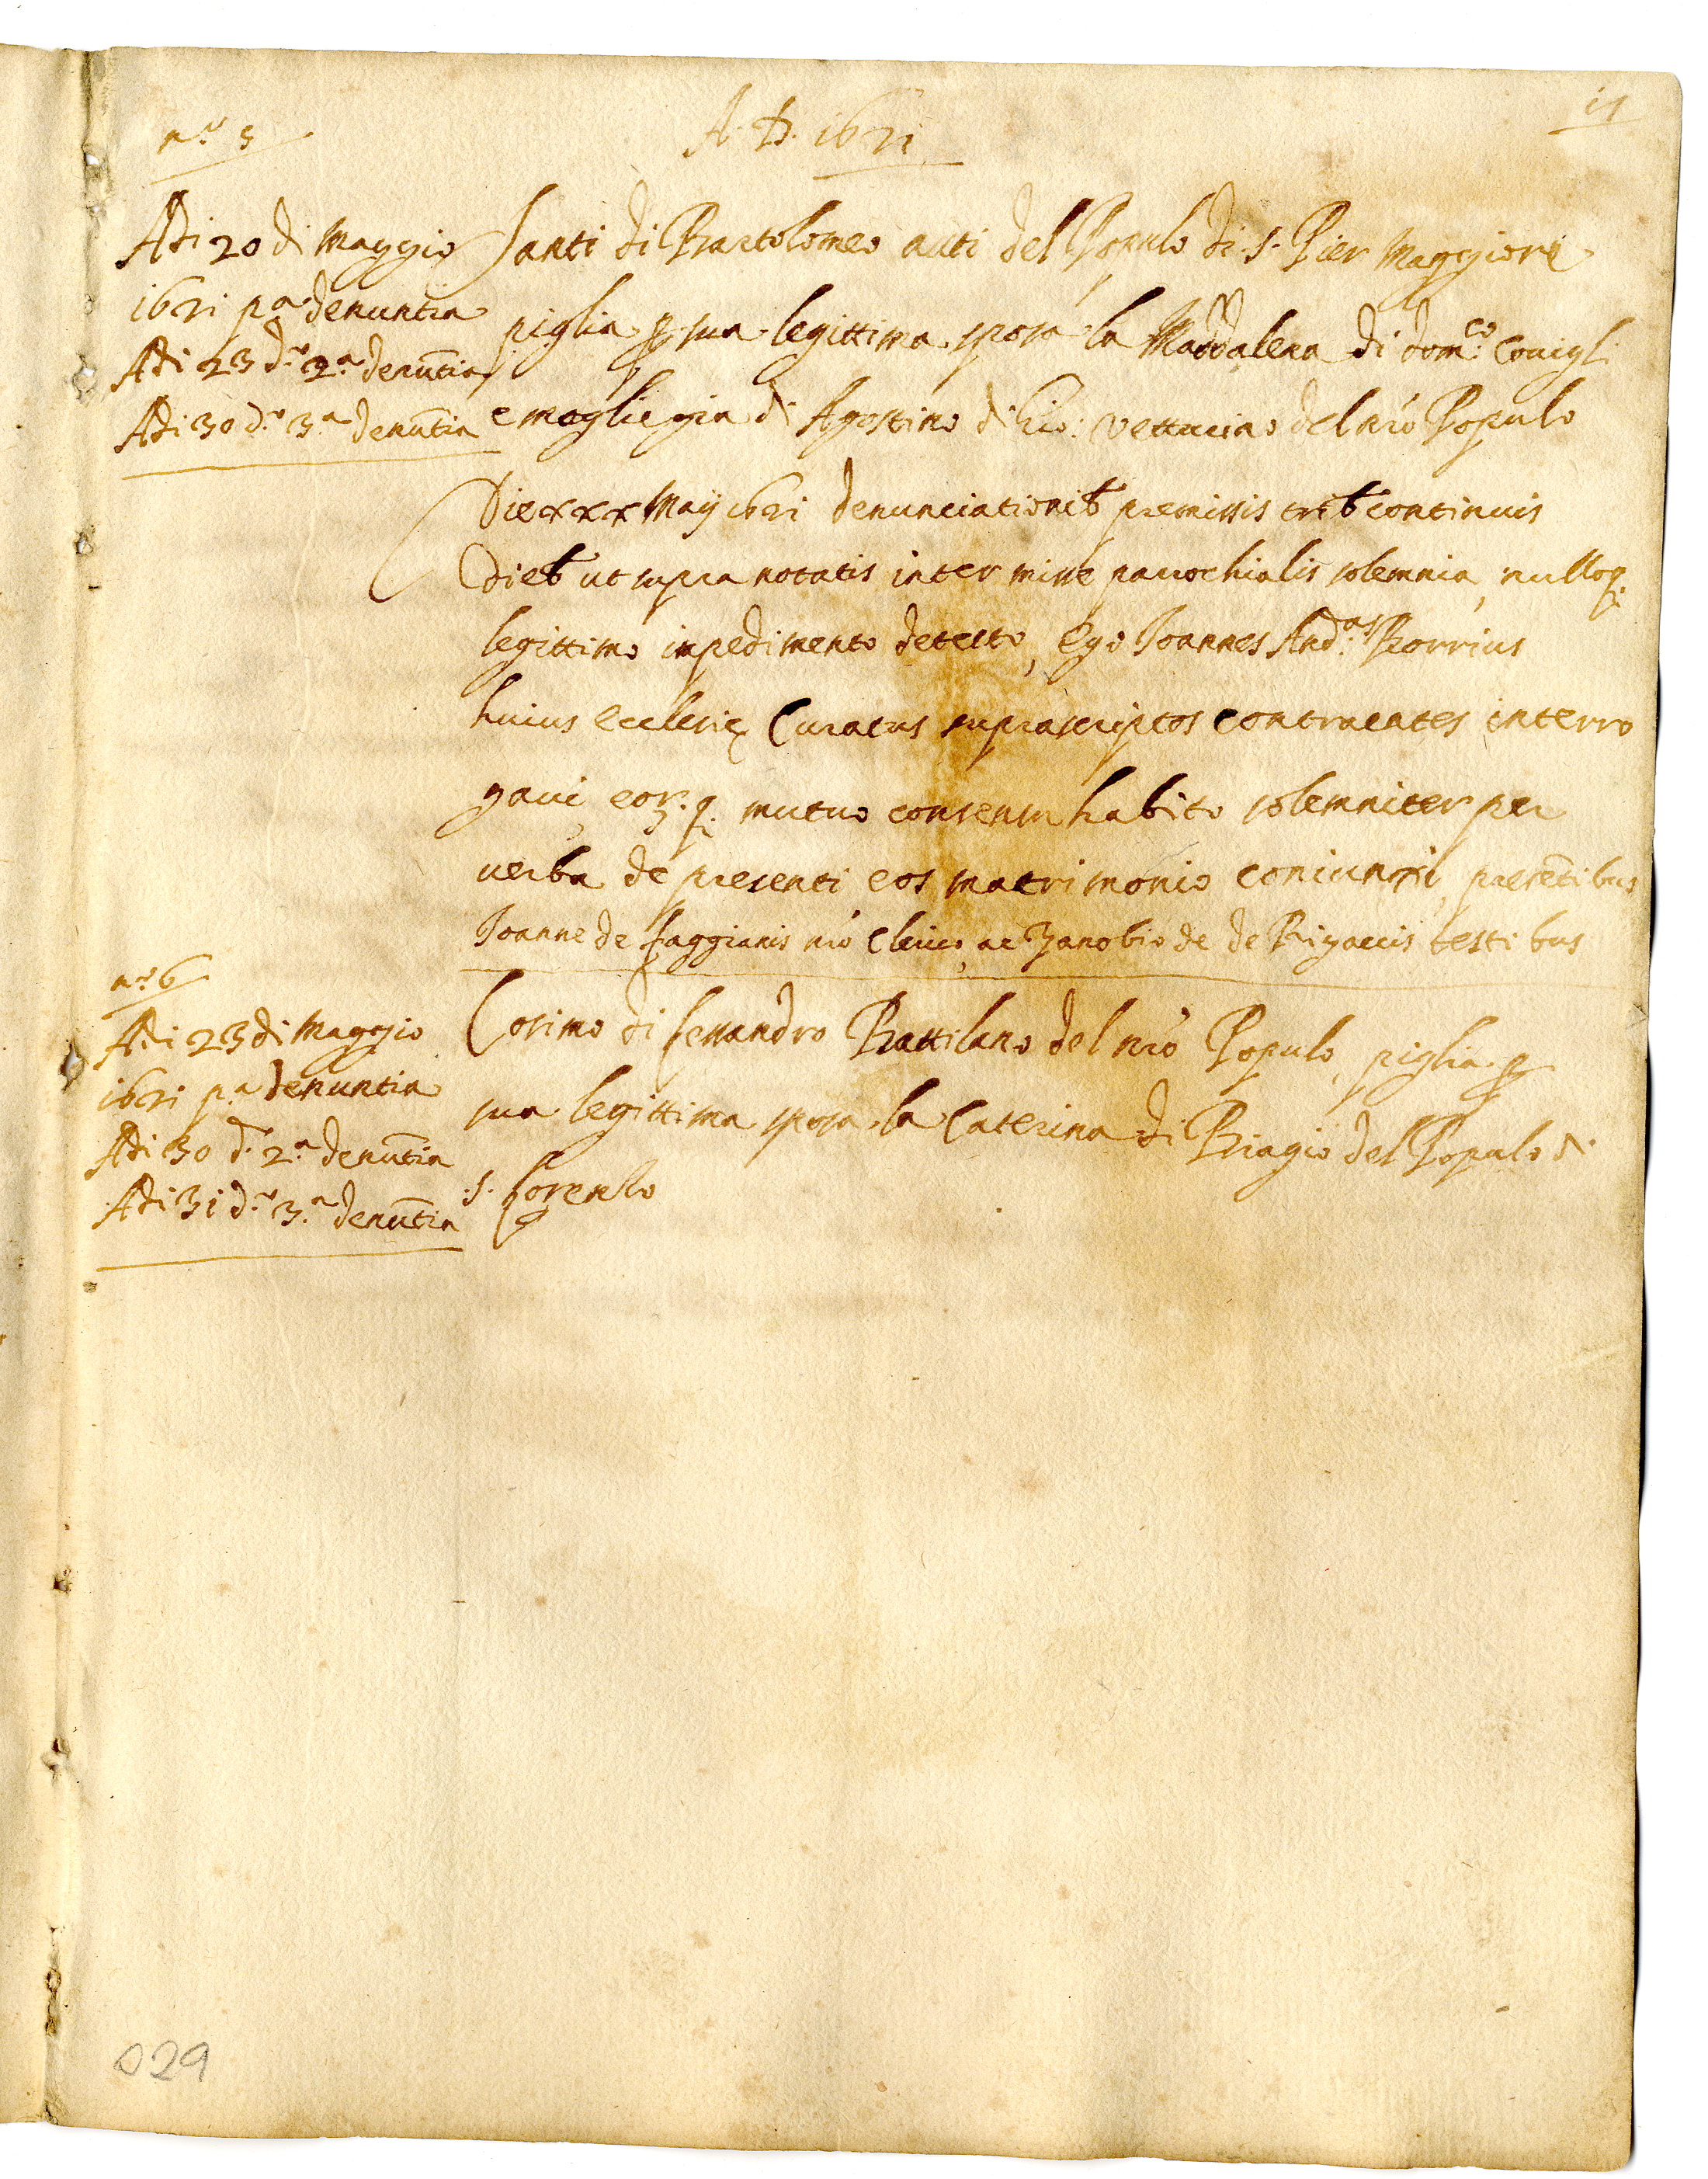 n.º 5
A. D. 1621
11
Adi 20 di Maggio
1621 p.ª denuntia
Adi 23 d.º 2.ª denũtia
Adi 30 d.º 3.ª denũtia
Santi di Bartolomeo auti del Popolo di S. Pier Maggiore
piglia p sua legittima sposa la Maddalena di Dom.co Conigli
e moglie gia di Agostino di Gio: Vettucino del nr̃o Popolo
Die xxx Maij 1621 denunciationib premissis trib continuis
dieb ut supra notatis inter misse parrochialis solemnia, nulloq.
legittimo inpedimento detecto, Ego Joannes And.as Borrius
huius ecclesię Curatus suprascriptos contracates interro
gavi, eor. q. mutuo consensu habito solemniter per
verba de presenti eos matrimonio coniunxi, presẽtibus
Joanne de faggianis nr̃o Clerico, ac Zanobio de de Rigaccis testibus
n.º 6
Adi 23 di Maggio
1621 p.ª denuntia
Adi 30 d.º 2.ª denũtia
Adi 31 d.º 3.ª denũtia
Cosimo di Lessandro Battilano del nr̃o Popolo, piglia p
sua legittima sposa la Caterina di Biagio del Popolo di
S. Lorenso
029